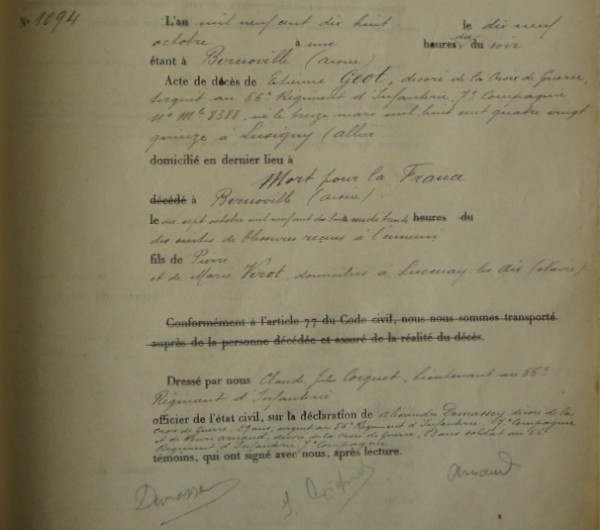 N° 1094
L'an mil neuf cent dix huit le dix neuf
octobre à une heures du soir
étant à Bernoville (Aisne)
Acte de décès de Etienne Geot, décoré de la Croix de Guerre,
sergent au 56e Régiment d'Infanterie, 7e Compagnie
N° Mle 8388, né le treize mars mil huit cent quatre vingt
quinze à Lusigny (Allier
domicilié en dernier lieu à
Mort pour la France
décédé à Bernoville (Aisne).
le dix sept octobre mil neuf cent dix huit heures du
des suites de blessures reçues à l'ennemi
fils de Pierre
et de Marie Verot, domiciliés à Lucenay les Aix (Nièvre)
Conformément à l'article 77 du Code civil, nous nous sommes transporté
auprès de la personne décédée et assuré de la réalité du décès.
Dressé par nous Claude Jules Corquet, Lieutenant au 56e
Régiment d'Infanterie
officier de l'état civil, sur la déclaration de Alexandre Demassey décoré de la
croix de guerre, 29 ans, sergent au 56e Régiment d'Infanterie, 7e Compagnie
et de Henri Arnaud, décoré de la croix de guerre, ans soldat au 56e
Régiment d'Infanterie, 7e Compagnie
témoins, qui ont signé avec nous, après lecture.
Arnaud